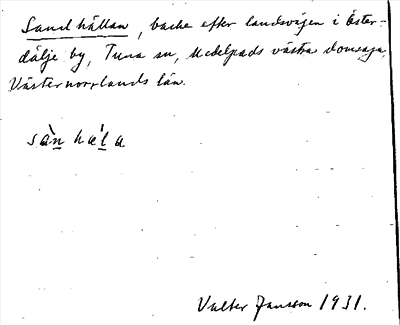 Sandhällan, backe efter landsvägen i Öster-
dälje by, Tuna sn, Medelpads västra domsaga,
Västernorrlands län.
sàn hæ̀la
Valter Jansson 1931.